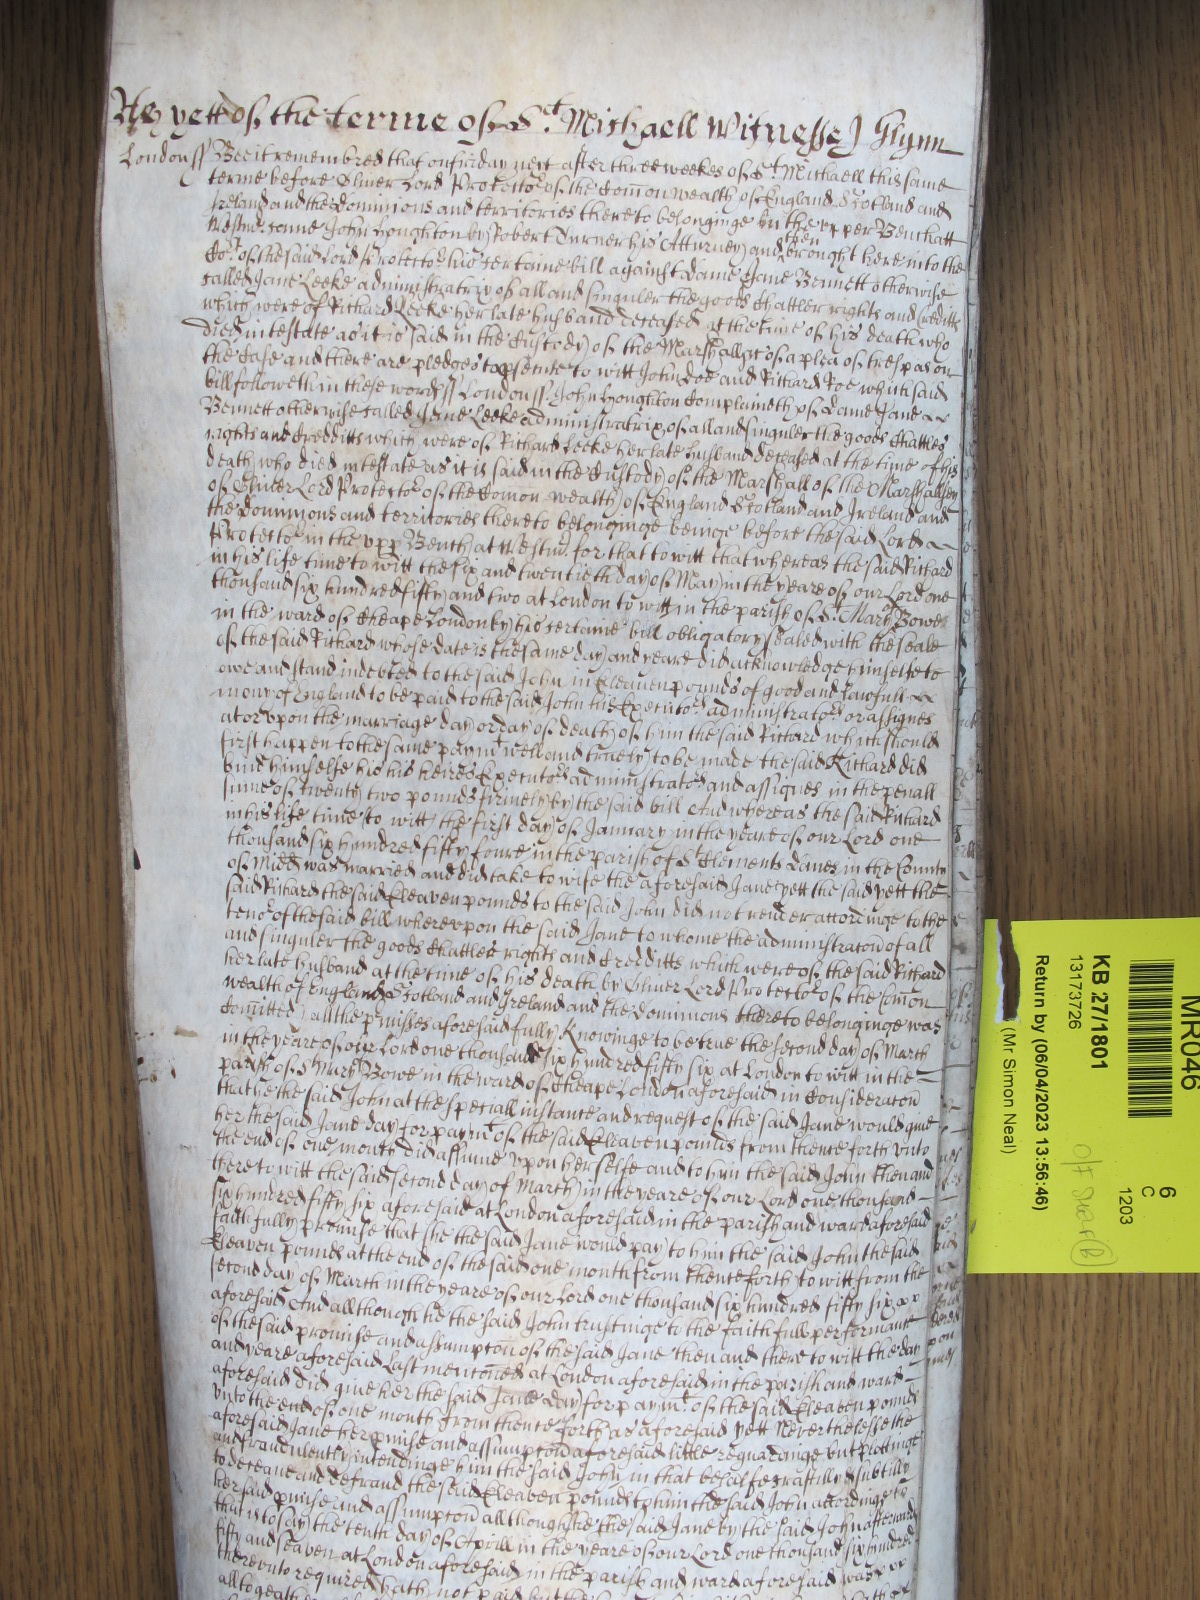 As yett of the terme of St. Michaell Witnesse J Glynn
London ss Bee it remembred that on friday next after three weekes of St Michaell this same
terme before Oliver Lord Protector of the Comon wealth of England Scotland and
Ireland and the Dominions and territories thereto belonginge in the upper Bench att
Westmr. come John Houghton by Robert Turner his Atturney and then brought here into the
Cort of the said Lord Protector his certaine bill against Dame Jane Bennett otherwise
called Jane Leeke administratrix of all and singuler the goods Chattles rights and Creditts
which were of Richard Leeke her late husband deceased at the time of his death who
died intestate as it is said in the Custody of the Marshall &c of a plea of trespas on
the Case and there are pledges to psecute to witt John Doe and Richard Roe which said
bill followeth in these words ss London ss John Houghton Complaineth of Dame Jane
Bennett otherwise called Jane Leeke administratrix of all and singuler the goods Chattles
rights and Credditts which were of Richard Leeke her late husband deceased at the time of his
death who died intestate as it is said in the Custody of the Marshall of the Marshallsey
of Oliver Lord Protector of the Comon wealth of England Scotland and Ireland and
the Dominions and territories thereto belonginge beinge before the said Lord
Protector in the upp Bench at Westmr. for that to witt that whereas the said Richard
in his life time to witt the six and twentieth day of May in the yeare of our Lord one
thousand six hundred fifty and two at London to witt in the parish of St. Mary Bowe
in the ward of Cheape London by his certaine bill obligatory sealed with the seale
of the said Richard whose date is the same day and yeare did acknowledge himselfe to
owe and stand indebted to the said John in Eleaven pounds of good and lawfull
mony of England to be paid to the said John his Executors administrators or assignes
at or upon the marriage day or day of death of him the said Richard which should
first happen to the same paymt well and truely to be made the said Richard did
bind himselfe his his heires Executors administrators and assignes in the penall
sume of twenty two pounds firmely by the said bill And whereas the said Richard
in his life time to witt the first day of January in the yeare of our Lord one
thousand six hundred fifty foure in the parish of St Clements Danes in the County
of Midd was married and did take to wife the aforesaid Jane yett the said yett the
said Richard the said Eleaven pounds to the said John did not render accordinge to the
tenor of the said bill whereupon the said Jane to whome the administracon of all
and singuler the goods Chattles rights and Credditts which were of the said Richard
her late husband at the time of his death by Oliver Lord Protector of the Comon
wealth of England Scotland and Ireland and the Dominions thereto belonginge was
Comitted all the pmisses aforesaid fully Knowinge to be true the second day of March
in the yeare of our Lord one thousand six hundred fifty six at London to witt in the
parish of St Mary Bowe in the ward of Cheape London aforesaid in Consideracon
that he the said John at the speciall instance and request of the said Jane would give
her the said Jane day for paymt of the said Eleaven pounds from thence forth unto
the end of one month did assume upon herselfe and to him the said John then and
there to witt the said second day of March in the yeare of our Lord one thousand
six hundred fifty six aforesaid at London aforesaid in the parish and ward aforesaid
faithfully promise that she the said Jane would pay to him the said John the said
Eleaven pounds at the end of the said one month from thence forth to witt from the
second day of March in the yeare of our Lord one thousand six hundred fifty six
aforesaid And allthough he the said John trustinge to the faithfull performance
of the said promise and assumpton of the said Jane then and there to witt the day
and yeare aforesaid last mentioned at London aforesaid in the parish and ward
aforesaid did give her the said Jane day for paymt of the said Eleaven pounds
unto the end of one month from thence forth as aforesaid yett Neverthelesse the
aforesaid Jane her pmise and assumpton aforesaid little reguardinge but plottinge
and fraudulently intendinge him the said John in that behalfe craftily & subtilly
to deceave and defraud the said Eleaven pounds to him the said John accordinge to
her said pmise and assumpton allthough she the said Jane by the said John afterwards
that is to say the tenth day of Aprill in the yeare of our Lord one thousand six hundred
fifty and seaven at London aforesaid in the parish and ward aforesaid was
thereunto required hath not paid
MR046
6
C
1203
KB 27/1801
13173726
Return by (06/04/2023 13:56:46)
(Mr Simon Neal)